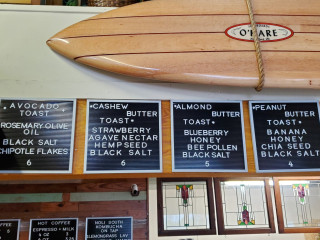 O'HARE
•AVOCADO•
TOAST
ROSEMARY OLIVE
OIL
BLACK SALT
CHIPOTLE FLAKES
6
•CASHEW
BUTTER
TOAST•
STRAWBERRY
AGAVE NECTAR
HEMPSEED
BLACK SALT
6
•ALMOND
BUTTER
TOAST•
BLUEBERRY
HONEY
BEE POLLEN
BLACK SALT
5
•PEANUT
BUTTER
TOAST•
BANANA
HONEY
CHIA SEED
BLACK SALT
4
HOT COFFEE
ESPRESSO + MILK
4 OZ 3
NOLI SOUTH
KOMBUCHA
ON TAP